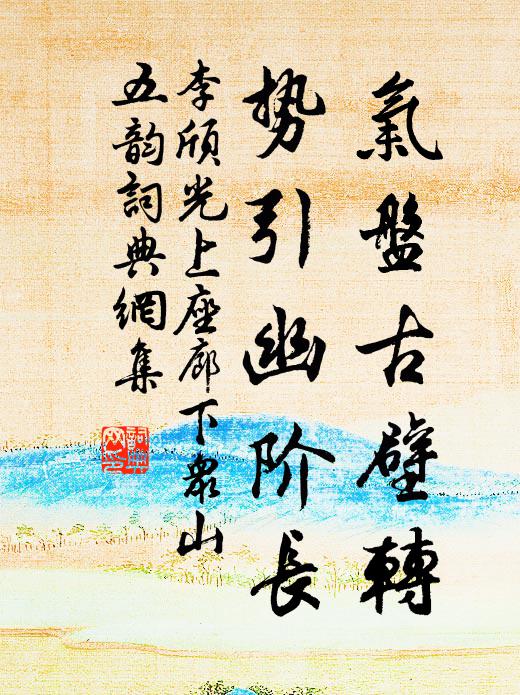 氣盤古壁轉
势引幽阶長
李頎光上座廊下眾山
五韵詞典網集